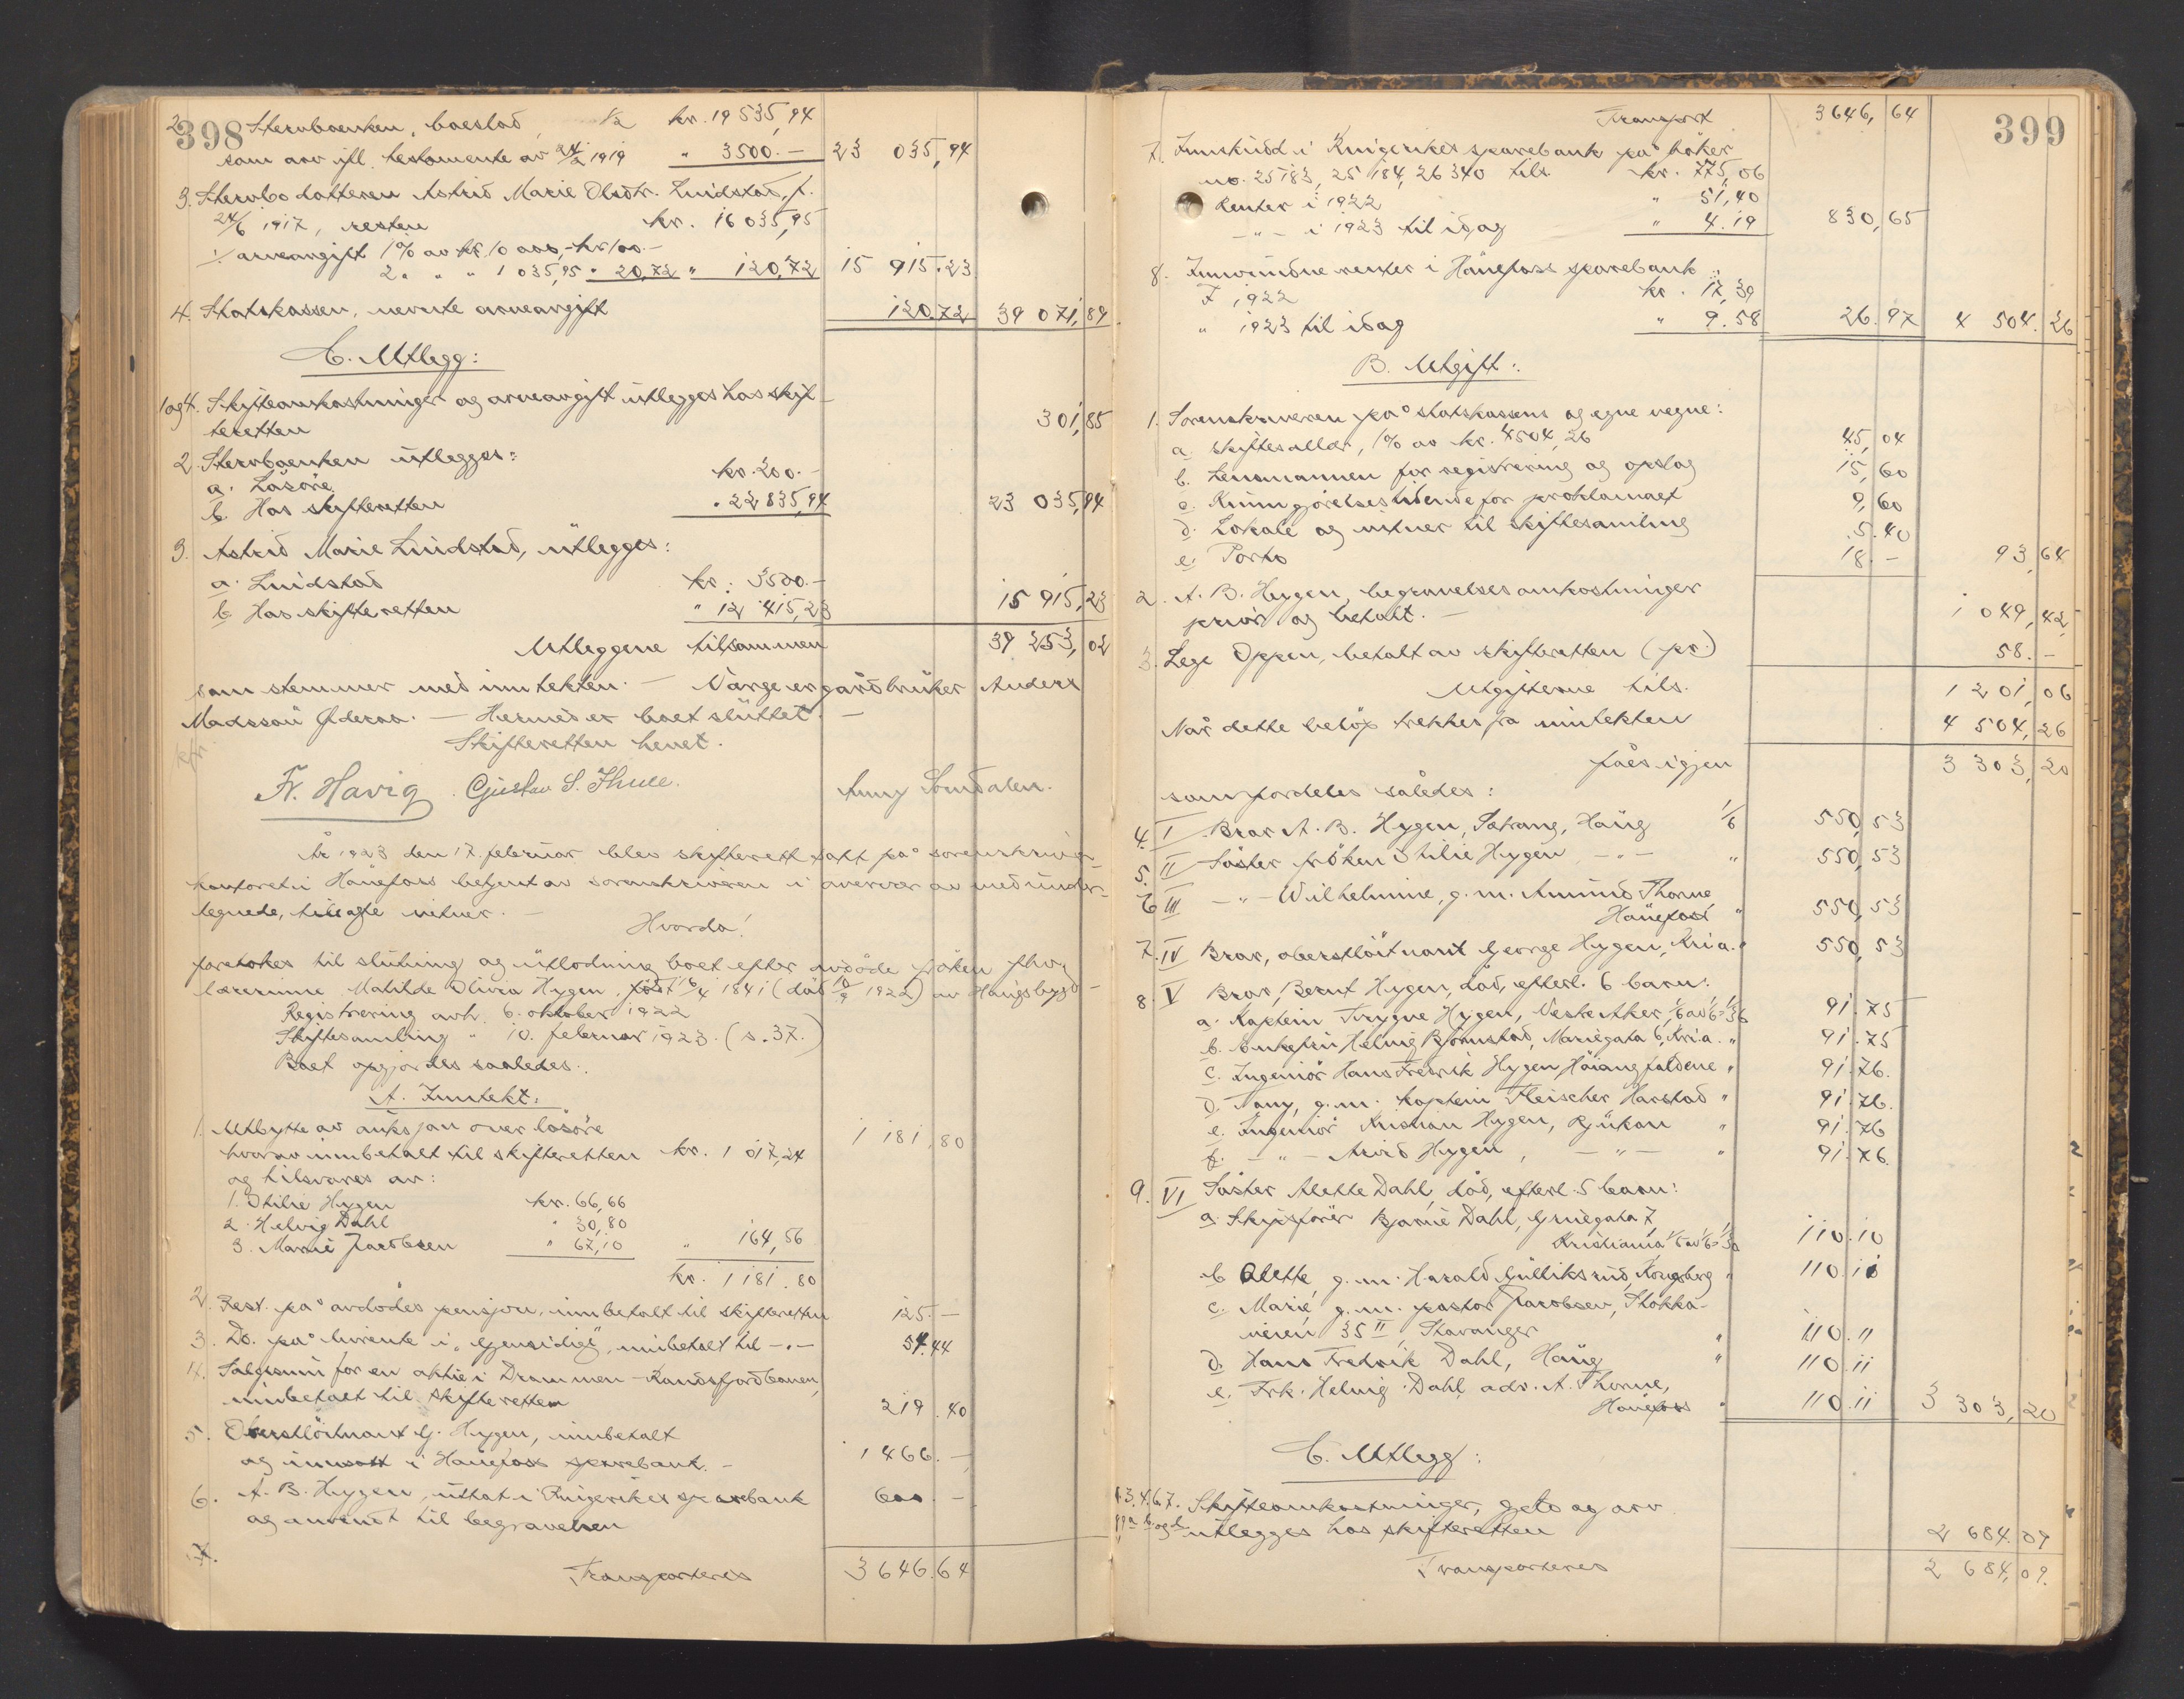 398
2. Stervboenken, boeslod, 1/2 kr. 19 535,94
som arv ifl. testamente av 24/2 1919 " 3500.- 23 035,94
3. Stervbodatteren Astrid Marie Olsdtr. Lindstad, f.
24/6 1917, resten kr. 16 035,95
÷ arveavgift 1% av kr. 10 000,- kr. 100.-
2 " " " 1 035,95 " 20,72 " 120,72 15 915.23
4. Statskassen, nevnte arveavgift 120.72 39 071,89
C. Utlegg:
1 og 4. Skifteomkostninger og arveavgift utlegges hos skif-
teretten 301,85
2. Stervboenken utlegges:
a. Løsøre kr. 200.-
b. Hos skifteretten " 22 835,94 23 035,94
3. Astrid Marie Lindstad, utlegges:
a. Lindstad kr. 3500.-
b. Hos skifteretten " 12 415,23 15 915,23
Utleggene tilsammen 39 253,02
som stemmer med inntekten. — Værge er gårdbruker Anders
Madsson . — Hermed er boet sluttet. —
Skifteretten hevet.
Fr. Havig. Gustav S. Thue.
År 1923 den 17. februar blev skifterett satt på sorenskriver-
kontoret i Hønefoss betjent av sorenskriveren i overvær av medunder-
tegnede, tilkalte vitner. —
Hvorda!
foretokes til slutning og utlodning boet efter avdøde frøken fhv.
lærerinne Matilde Olivia Hygen, født 16/4 1841 (død 10/9 1922) av Haugsbygd-
Registrering avh. 6. oktober 1922
Skiftesamling " 10. februar 1923. (s. 37.)
Boet opgjordes saaledes:
A. Inntekt:
1. Utbytte av auksjon over løsøre 1 181,80
hvorav innbetalt til skifteretten kr. 1 017,24
og tilsvares av:
1. Otilie Hygen kr. 66,66
2. Helvig Dahl " 30,80
3. Marie Jacobsen " 67,10 " 164,56
kr. 1 181.80
2. Rest på avdødes pensjon, innbetalt til skifteretten 125.-
3. Do. på livrente i "Gjensidige", innbetalt til -"- 54.44
4. Salgssum for en aktie i Drammen-Randsfjordbanen,
innbetalt til skifteretten 219.40
5. Oberstløitnant G. Hygen, innbetalt
og innsatt i Hønefoss sparebank. - 1 466.-
6. A. B. Hygen, uttat i Ringerikes sparebank 600.-
og anvendt til begravelsen
7.
Transporteres 3646.64
399
Transport 3646,64
7. Innskudd i Ringerikes sparebank på bøker
no. 25183, 25184, 26340 tils. kr. 775,06
Renter i 1922 " 51,40
-"- i 1923 til idag " 4.19 830,65
8. Innvundne renter i Hønefoss sparebank:
I 1922 kr. 17,39
" 1923 til idag " 9.58 26.97 4 504.26
B. Utgift:
1. Sorenskriveren på statskassens og egne vegne:
a. skiftesallær, 1% av kr. 4504,26 45,04
b. Lensmannen for registrering og opslag 15,60
c. Kunngjørelsestidende for proklamaet 9,60
d. Lokale og vitner til skiftesamling 5.40
e. Porto 18.- 93,64
2. A. B. Hygen, begravelsesomkostninger
prior. og betalt. - 1 049,42
3. Lege Oppen, betalt av skifteretten (pr.) 58.-
Utgifterne tils. 1 201,06
Når dette beløp trekkes fra inntekten 4 504,26
fåes igjen 3 303,20
som fordeles således:
4. I Bror A. B. Hygen, Sætrang, Haug 1/6 550,53
5. II Søster frøken Otilie Hygen -"- " 550,53
6. III -"- Wilhelmine, g.m. Amund Thorne
Hønefoss " 550,53
7. IV Bror, oberstløitnant George Hygen, Kr.i.a. " 550,53
8. V Bror, Bernt Hygen, død, efterl. 6 barn:
a. Kaptein Trygve Hygen, Vestre Aker, 1/6 av 1/6 = 1/36 91.75
b. Enkefru Helvig Bjørnstad, Mariegata 6, Kr.i.a. " 91.75
c. Ingeniør Hans Fredrik Hygen, Høiangfaldene " 91.76.
d. Nany, g.m. kaptein Fleischer Harstad " 91.76.
e. Ingeniør Kristian Hygen, Rjukan " 91.76
f. -"- Arvid Hygen, -"- " 91.76.
9. VI Søster Alette Dahl, død, efterl. 5 barn:
a. Skipsfører Bjarne Dahl, Griegata 7,
Kristiania 1/5 av 1/6 = 1/30 110.10
b. Alette, g.m. Harald Gulliksrud, Kongsberg " 110.10
c. Marie, g.m. pastor Jacobsen, Stokka-
veien 35 II, Stavanger " 110.11
d. Hans Fredrik Dahl, Haug " 110.11
e. Frk. Helvig Dahl, adr. A. Thorne,
Hønefoss " 110.11 3 303,20
C. Utlegg:
Skifteomkostninger, gjeld og arv
utlegges hos skifteretten 2 684.09
Transporteres 2 684,09.